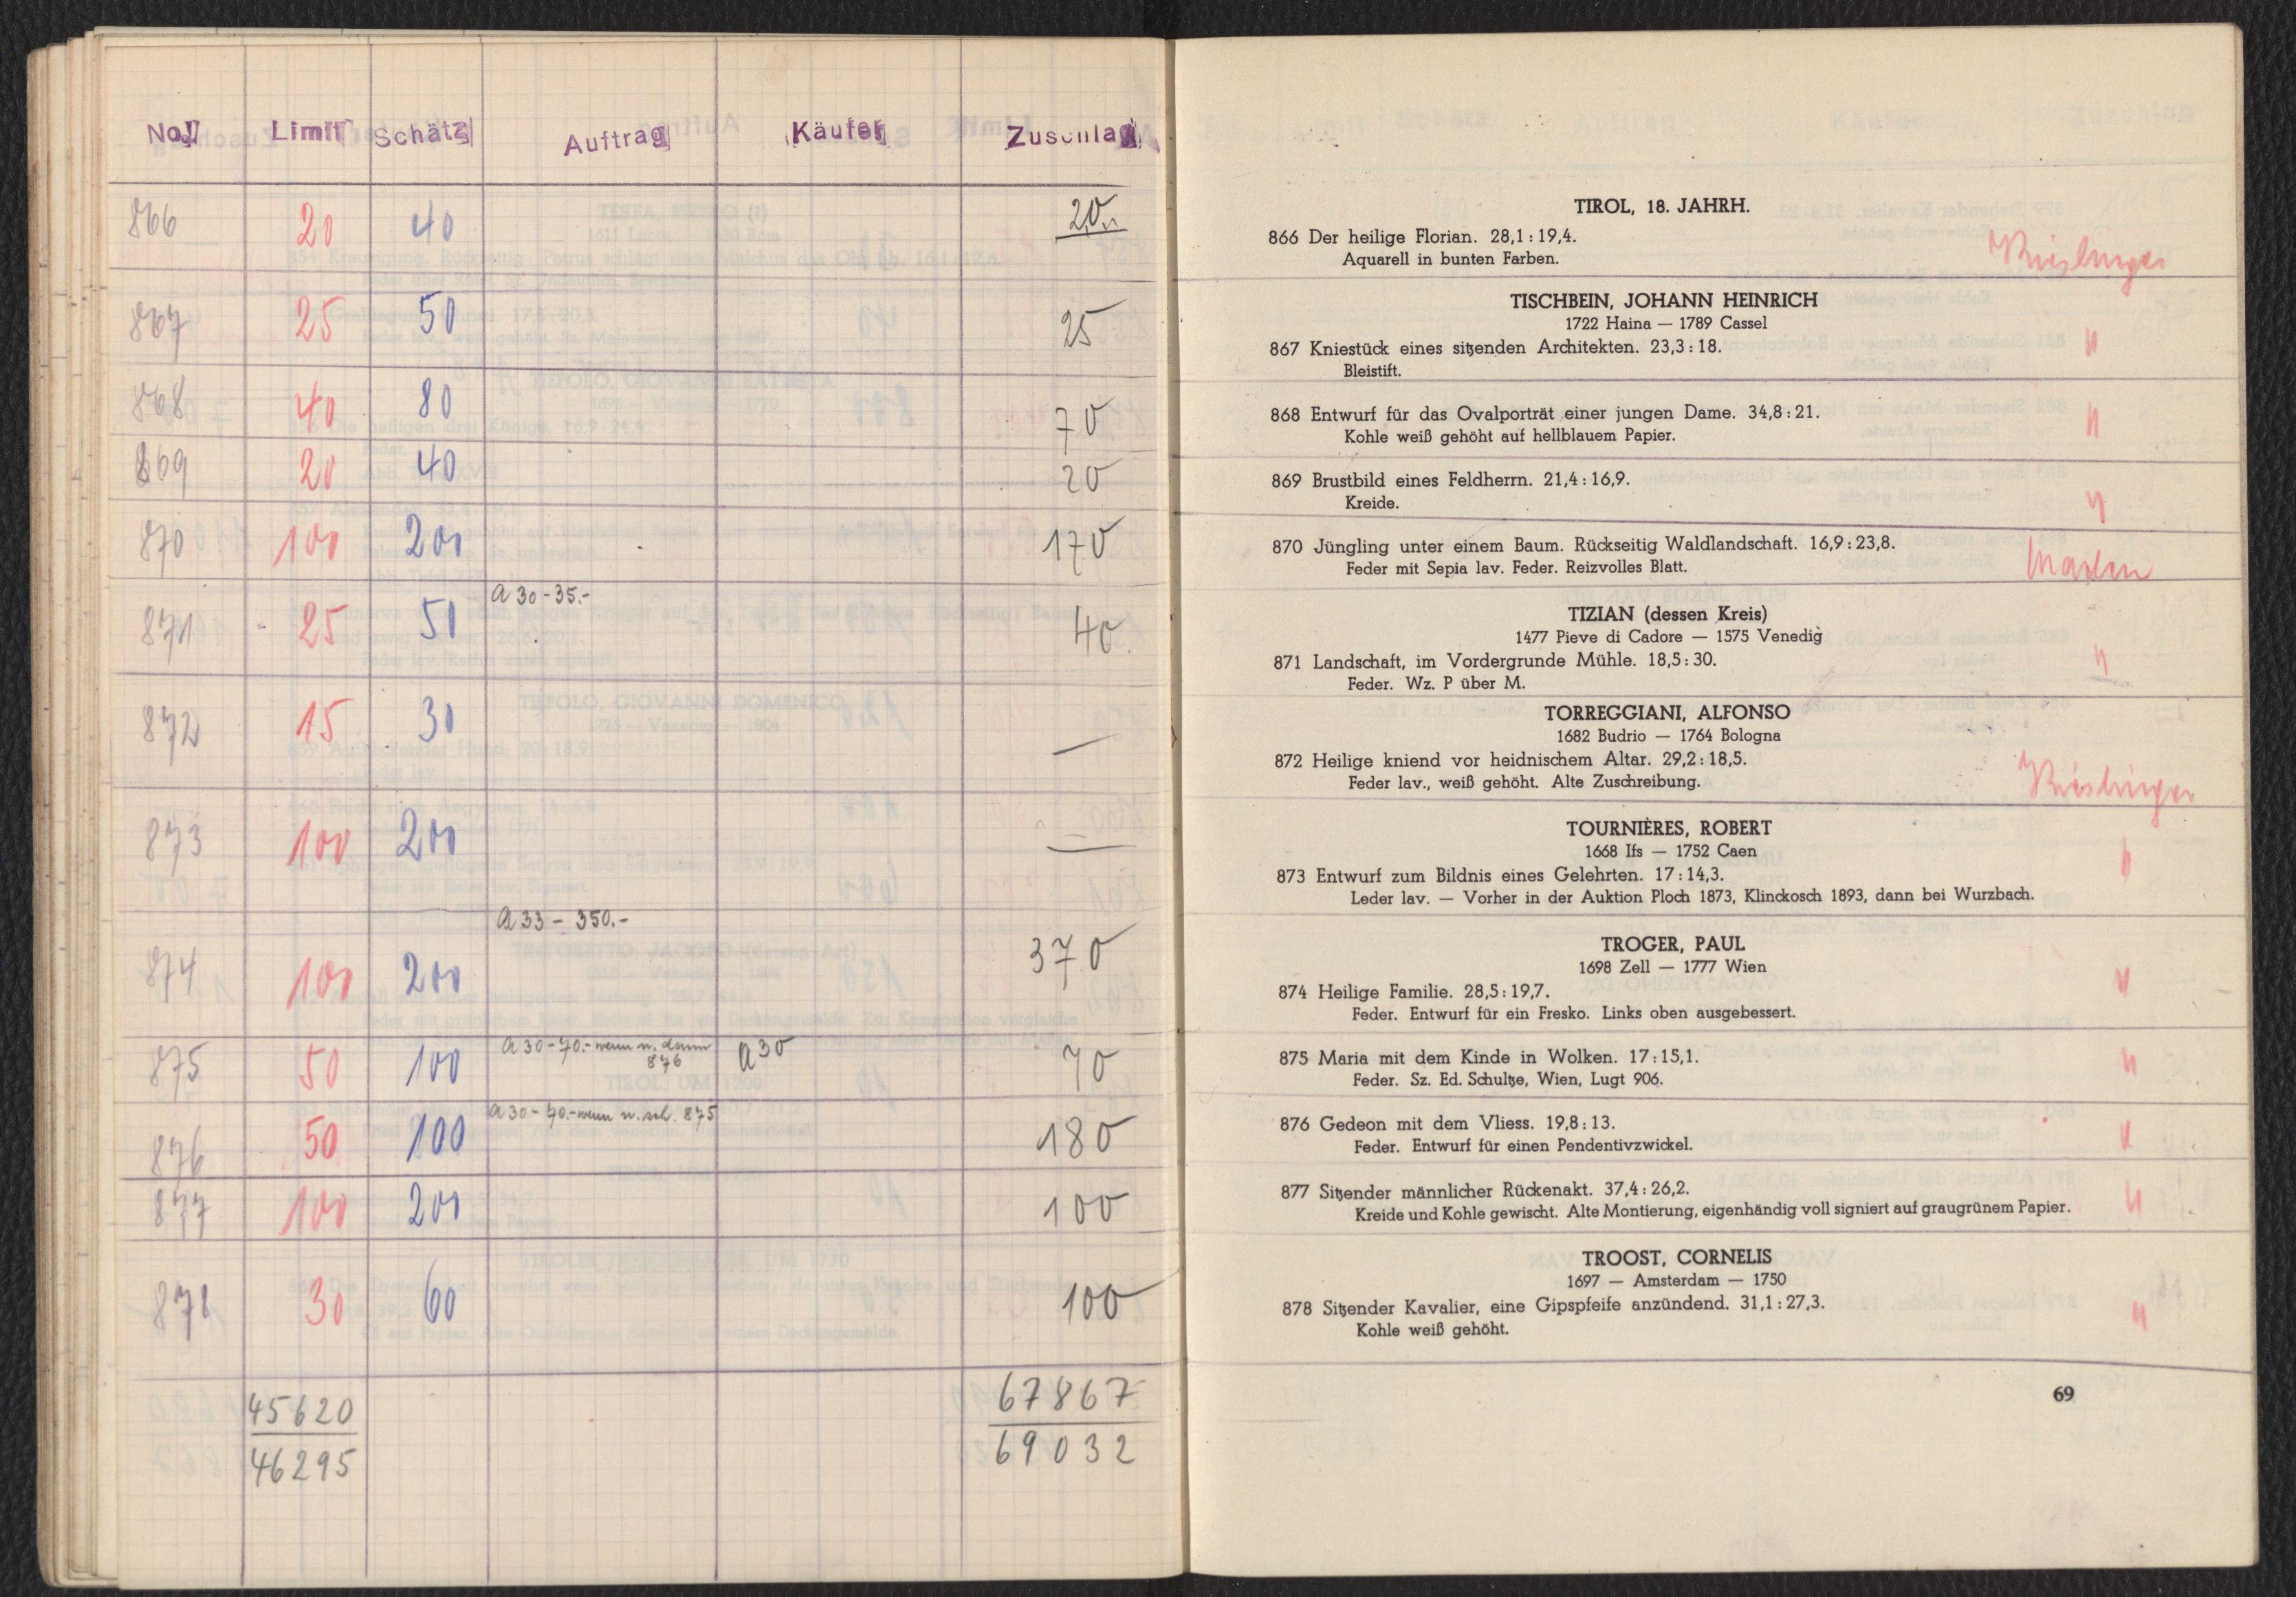 No. Limit Schätz Auftrag Käufer Zuschlag
866 20 40 20.
867 25 50 25
868 40 80 70
869 20 40 20
870 100 200 170
871 25 50 a 30-35.- 40
872 15 30 —
873 100 200 —
874 100 200 a 33 - 350.- 370
875 50 100 a 30-70.- wenn n. dann 876 a 30 70
876 50 100 a 30-70.- wenn n. 875 180
877 100 200 100
878 30 60 100
45620 67867
46295 69032
TIROL, 18. JAHRH.
866 Der heilige Florian. 28,1 : 19,4.
Aquarell in bunten Farben.
TISCHBEIN, JOHANN HEINRICH
1722 Haina — 1789 Cassel
867 Kniestück eines sitzenden Architekten. 23,3 : 18. "
Bleistift.
868 Entwurf für das Ovalporträt einer jungen Dame. 34,8 : 21. "
Kohle weiß gehöht auf hellblauem Papier.
869 Brustbild eines Feldherrn. 21,4 : 16,9.
Kreide. "
870 Jüngling unter einem Baum. Rückseitig Waldlandschaft. 16,9 : 23,8.
Feder mit Sepia lav. Feder. Reizvolles Blatt.
TIZIAN (dessen Kreis)
1477 Pieve di Cadore — 1575 Venedig
871 Landschaft, im Vordergrunde Mühle. 18,5 : 30. "
Feder. Wz. P über M.
TORREGGIANI, ALFONSO
1682 Budrio — 1764 Bologna
872 Heilige kniend vor heidnischem Altar. 29,2 : 18,5.
Feder lav., weiß gehöht. Alte Zuschreibung.
TOURNIÈRES, ROBERT
1668 Ifs — 1752 Caen
873 Entwurf zum Bildnis eines Gelehrten. 17 : 14,3. "
Leder lav. — Vorher in der Auktion Ploch 1873, Klinckosch 1893, dann bei Wurzbach.
TROGER, PAUL
1698 Zell — 1777 Wien
874 Heilige Familie. 28,5 : 19,7. "
Feder. Entwurf für ein Fresko. Links oben ausgebessert.
875 Maria mit dem Kinde in Wolken. 17 : 15,1. "
Feder. Sz. Ed. Schultze, Wien, Lugt 906.
876 Gedeon mit dem Vliess. 19,8 : 13. "
Feder. Entwurf für einen Pendentivzwickel.
877 Sitzender männlicher Rückenakt. 37,4 : 26,2. "
Kreide und Kohle gewischt. Alte Montierung, eigenhändig voll signiert auf graugrünem Papier.
TROOST, CORNELIS
1697 — Amsterdam — 1750
878 Sitzender Kavalier, eine Gipspfeife anzündend. 31,1 : 27,3. "
Kohle weiß gehöht.
69